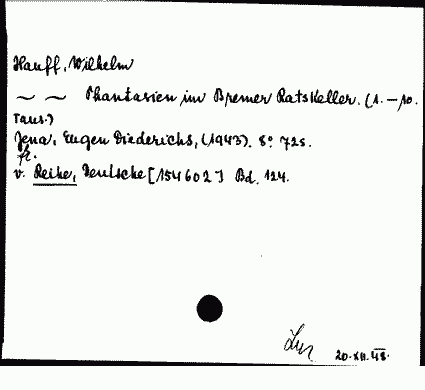 Hauff, Wilhelm
~ ~ Phantasien im Bremer Ratskeller. (1.–10.
Taus.)
Jena, Eugen Diederichs, (1943). 8° 72 s.
fr.
v. Reihe, Deutsche [154602] Bd. 124.
20.XII.48.